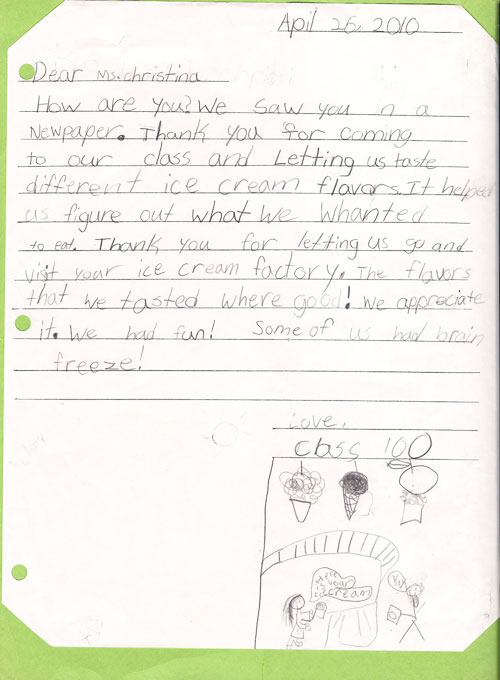 April 26, 2010
Dear Ms. christina
How are you? We saw you in a
Newpaper. Thank you for coming
to our class and Letting us taste
different ice cream flavors. It helped
us figure out what we whanted
to eat. Thank you for letting us go and
visit your ice cream factory. The flavors
that we tasted where good! We appreciate
it. We had fun! Some of us had brain
freeze!
Love,
Class 100
Here
is your
ice cream